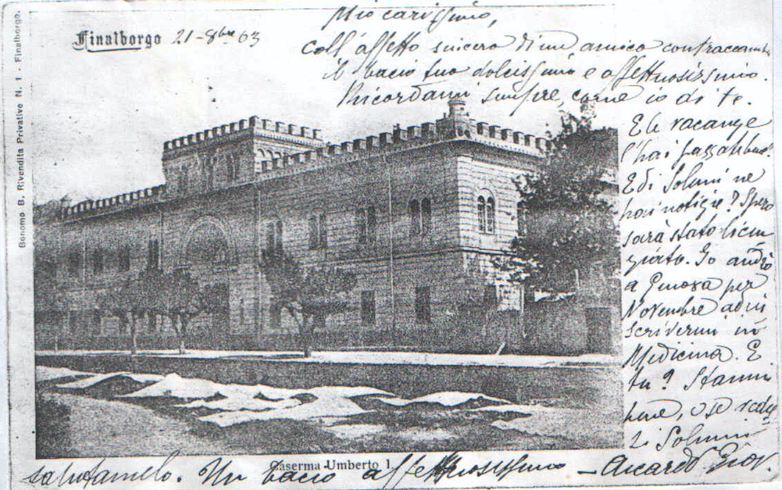 Bonomo B. Rivendita Privative N. 1 - Finalborgo.
Finalborgo 21-8bre 03
Mio carissimo,
coll'affetto sincero di un amico contraccambio
il bacio tuo dolcissimo e affettuosissimo.
Ricordami sempre, come io di te.
E le vacanze
l'hai passate
E di Solani ne
hai notizie? Spero
sarà stato licen
ziato. Io andrò
a Genova per
Novembre ad in
scrivermi in
Medicina. E
tu? Stammi
bene, e se vedes
si Solani
salutamelo. Un bacio affettuosissimo -
Caserma Umberto I.